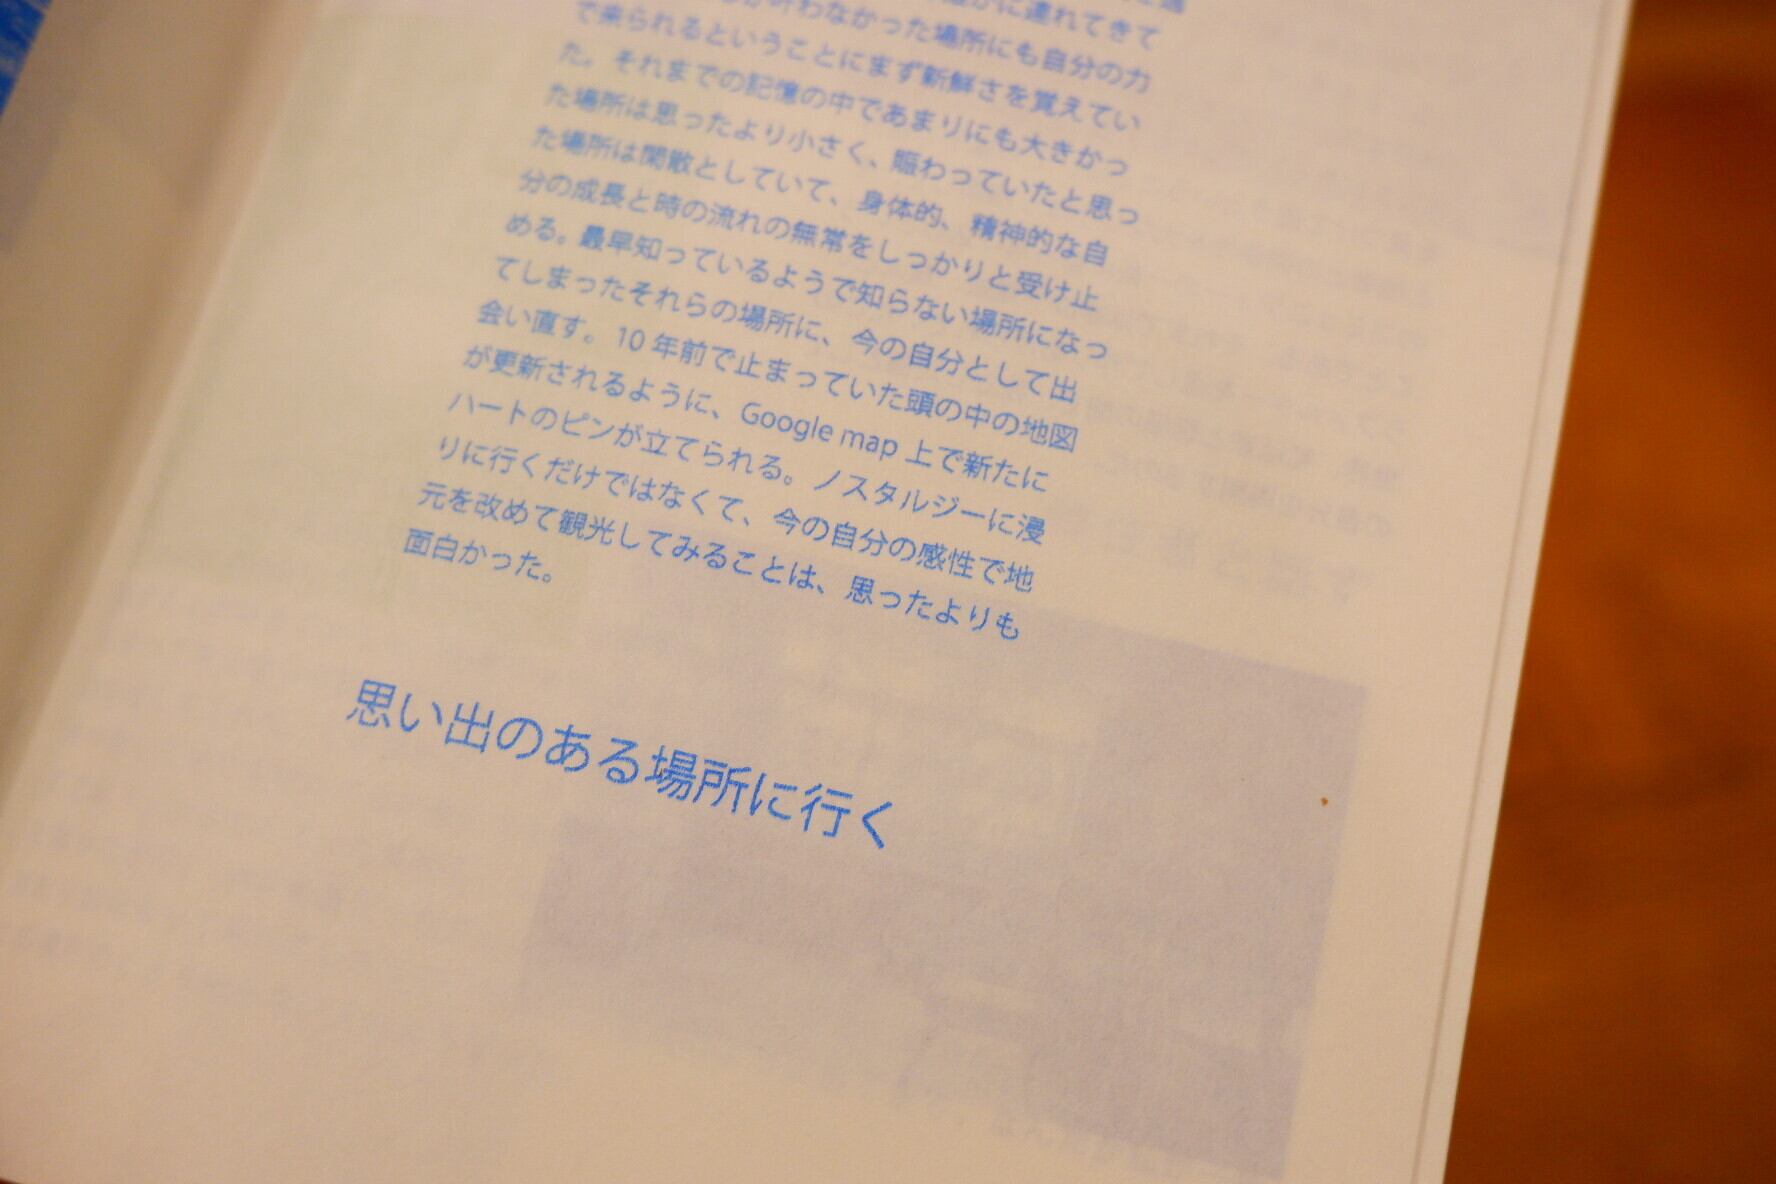 に連れてきて
が叶わなかった場所にも自分の力
で来られるということにまず新鮮さを覚えてい
た。それまでの記憶の中であまりにも大きかっ
た場所は思ったより小さく、賑わっていたと思っ
た場所は閑散としていて、身体的、精神的な自
分の成長と時の流れの無常をしっかりと受け止
める。最早知っているようで知らない場所になっ
てしまったそれらの場所に、今の自分として出
会い直す。10年前で止まっていた頭の中の地図
が更新されるように、Google map 上で新たに
ハートのピンが立てられる。ノスタルジーに浸
りに行くだけではなくて、今の自分の感性で地
元を改めて観光してみることは、思ったよりも
面白かった。
思い出のある場所に行く